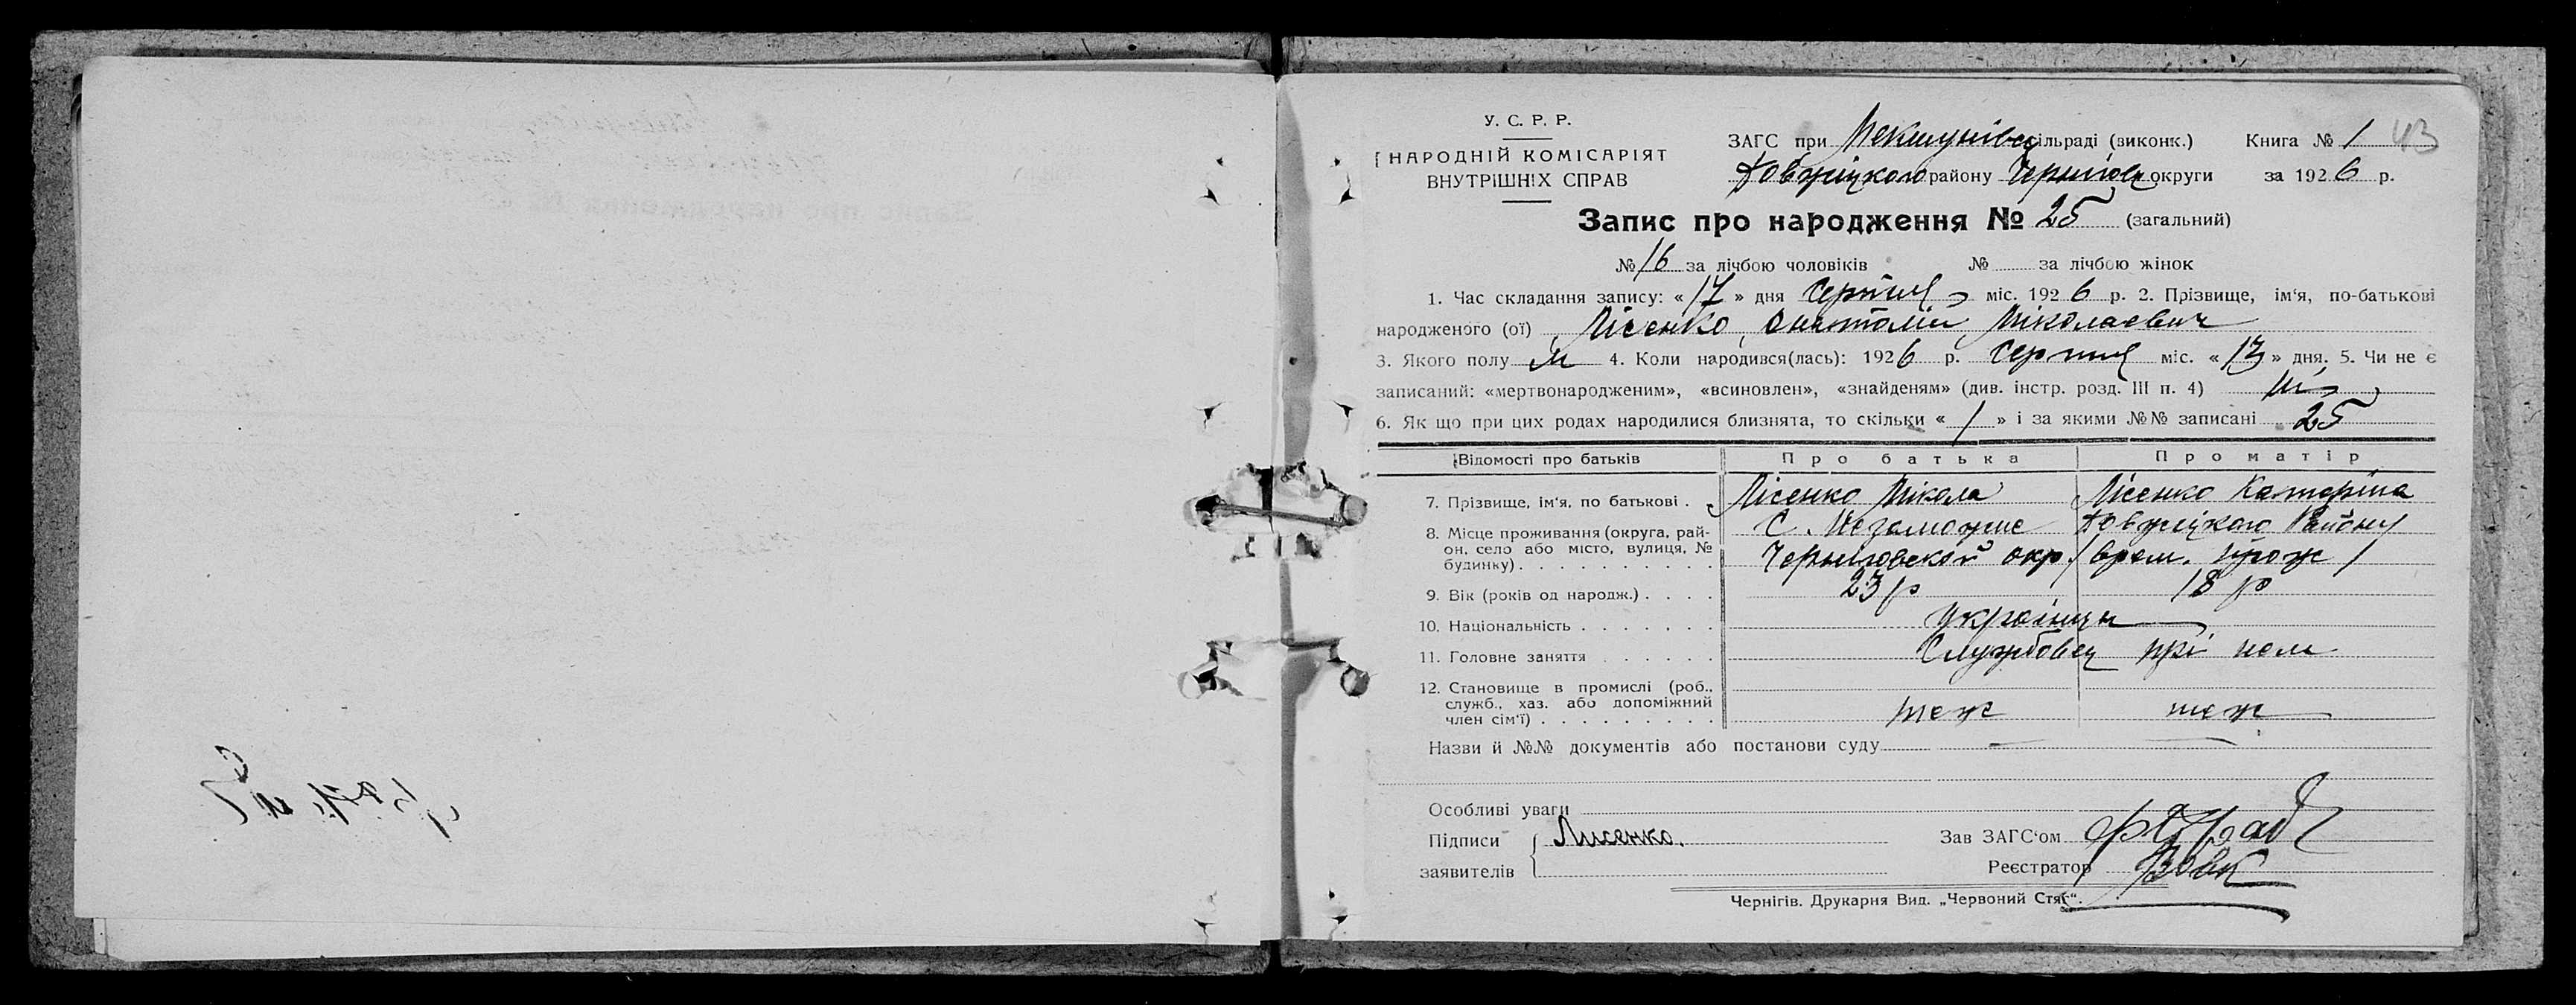 У. С. Р. Р.
НАРОДНІЙ КОМІСАРІЯТ
ВНУТРІШНІХ СПРАВ
ЗАГС при сільраді (виконк.) Книга № 1 43
району Чернігов округи за 1926 р.
Запис про народження № 25 (загальний)
№ 16 за лічбою чоловіків № за лічбою жінок
1. Час складання запису: « 17 » дня Серпня міс. 1926 р. 2. Прізвище, ім‘я, по-батькові
народженого (ої) Лісенко, Анатолій Міколаевич
3. Якого полу м 4. Коли народився(лась): 1926 р. Серпня міс. « 13 » дня. 5. Чи не є
записаний: «мертвонародженим», «всиновлен», «знайденям» (див. інстр. розд. III п. 4) ні
6. Як що при цих родах народилися близнята, то скільки « 1 » і за якими №№ записані 25
Відомості про батьків Про батька Про матір
7. Прізвище, ім‘я, по батькові . Лісенко Мікола Лісенко Катеріна
8. Місце проживання (округа, рай-
он, село або місто, вулиця, №
будинку) . . . . . . . . . .
С. Незаможне Району
Черниговской окр. / врем. прож /
9. Вік (років од народж.) . . . . 23 р 18 р
10. Національність . . . . . . . Українци
11. Головне заняття . . . . . . Службовец прі нем
12. Становище в промислі (роб.,
служб., хаз. або допоміжний
член сім‘ї) . . . . . . . . . теж теж
Назви й №№ документів або постанови суду
Особливі уваги
Підписи Лисенко. Зав ЗАГС‘ом
заявителів Реєстратор Вовк
Чернігів. Друкарня Вид. „Червоний Стяг“.